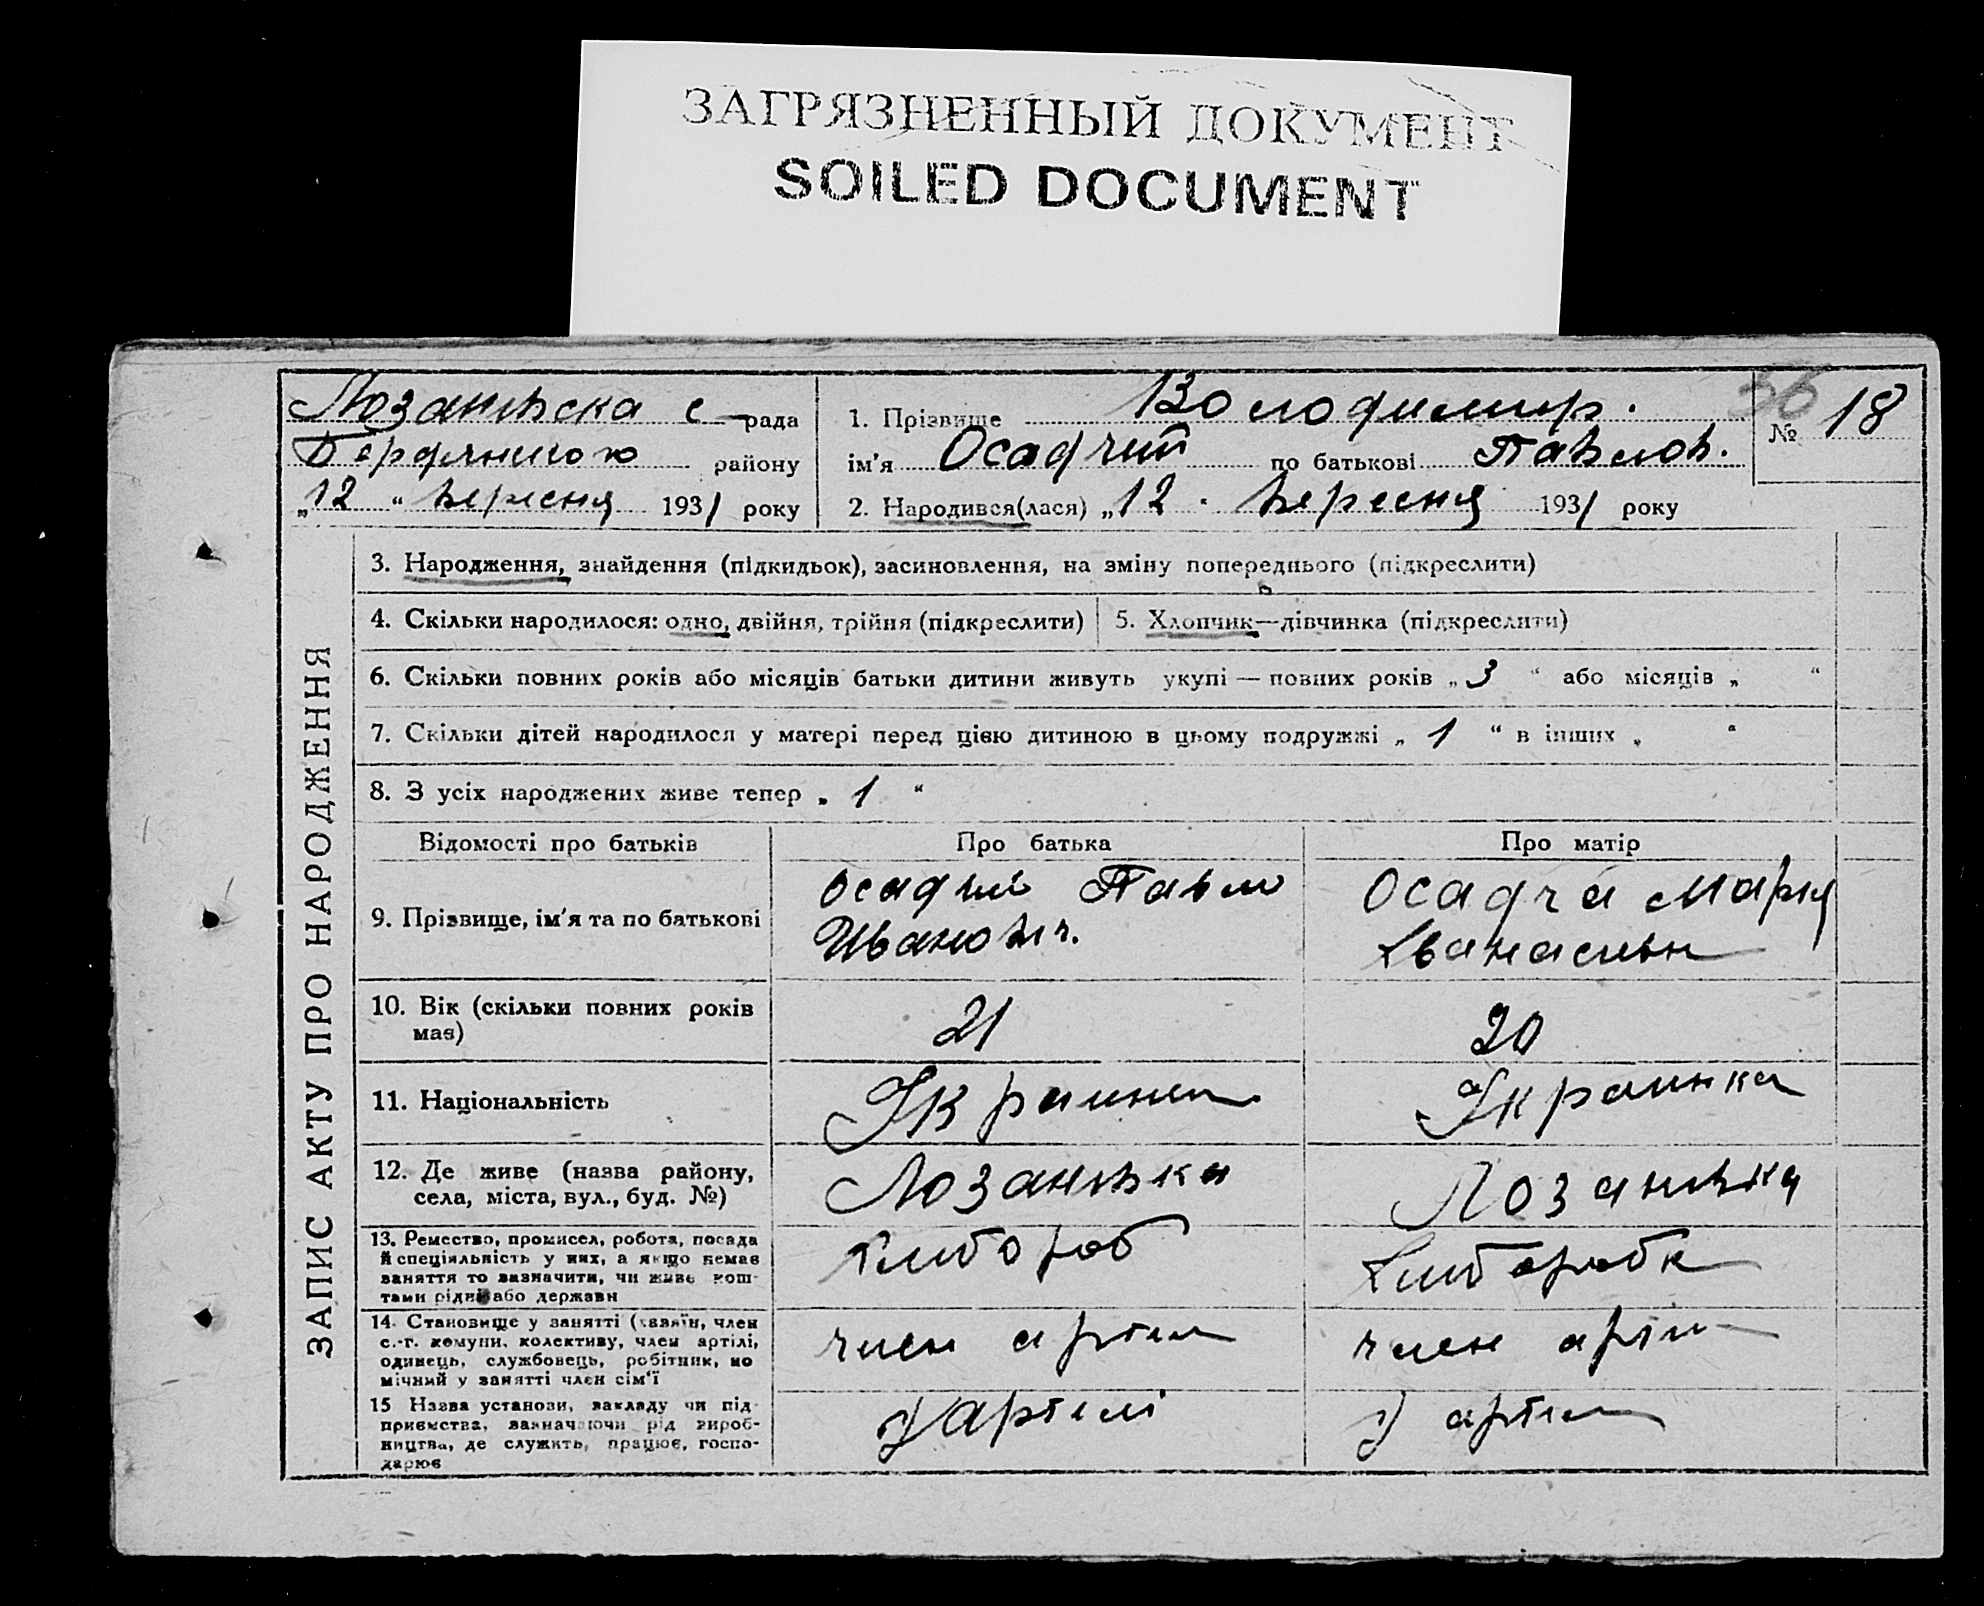 ЗАГРЯЗНЕННЫЙ ДОКУМЕНТ
SOILED DOCUMENT
Лозанівська с рада
району
„12“ вересня 1931 року
1. Прізвище Володимир.
ім'я Осадчий по батькові Павлов.
2. Народився(лася) „12. вересня 1931 року
36
№ 18
ЗАПИС АКТУ ПРО НАРОДЖЕННЯ
3. Народження, знайдення (підкидьок), засиновлення, на зміну попереднього (підкреслити)
4. Скільки народилося: одно, двійня, трійня (підкреслити)
5. Хлопчик—дівчинка (підкреслити)
6. Скільки повних років або місяців батьки дитини живуть укупі — повних років „3“ або місяців „ “
7. Скільки дітей народилося у матері перед цією дитиною в цьому подружжі „1“ в інших „ “
8. З усіх народжених живе тепер „1“
Відомості про батьків
Про батька
Про матір
9. Прізвище, ім'я та по батькові
Осадчий Павло
Иванович.
Осадча Марія
10. Вік (скільки повних років
має)
21
20
11. Національність
Украинка
12. Де живе (назва району,
села, міста, вул., буд. №)
Лозанівка
Лозанівка
13. Ремество, промисел, робота, посада
й спеціяльність у них, а якщо немає
заняття то зазначити, чи живе кош-
тами рідні або держави
Хлібороб
14. Становище у занятті (хазяїн, член
с.-г. комуни, колективу, член артілі,
одинець, службовець, робітник, по
мічний у занятті член сім'ї
член артіли
член артіли
15 Назва установи, закладу чи під-
приємства, зазначаючи рід вироб-
ництва, де служить, працює, госпо-
дарює
У артілі
У артіли